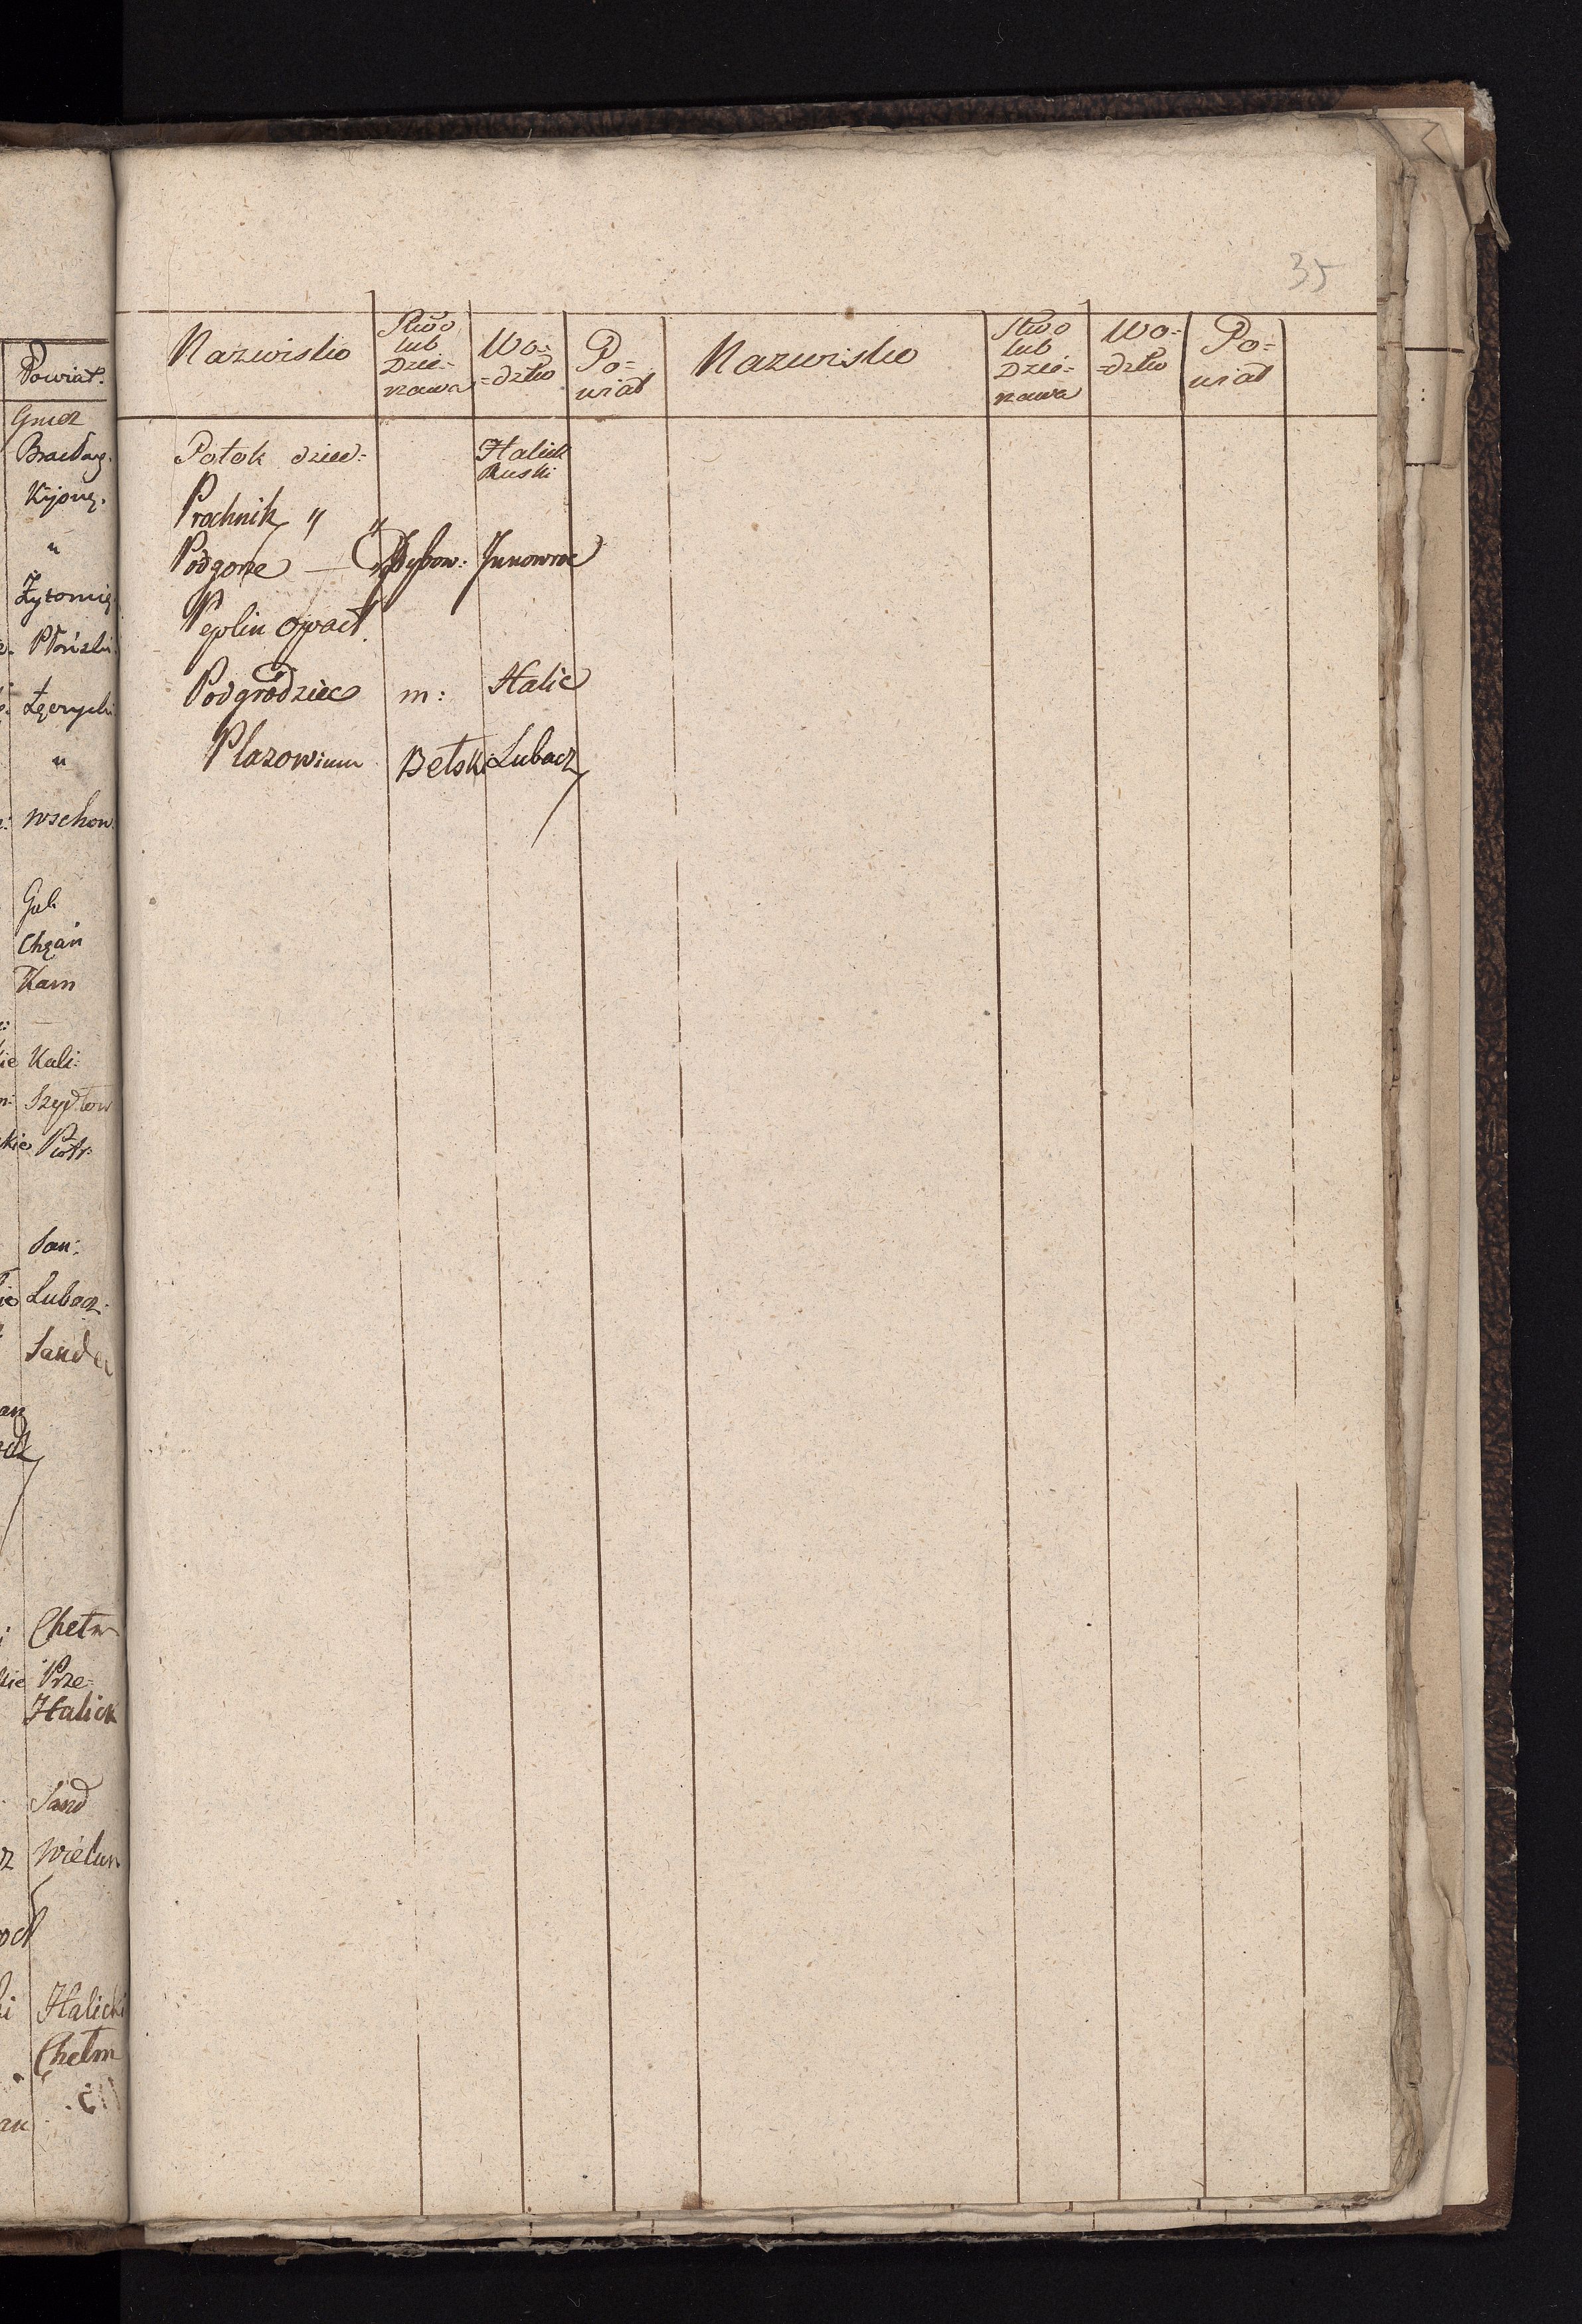 35
Powiat.
Gniez
Bracław.
Kijow.
"
Żytomi
Płoński.
Łęczyck
"
Wschow.
Gal.
Chęciń
Kam
Kali:
Szydłow
Piotr:
San:
Lubacz.
Sandec
Chełm
Prze=
Halick
Sand
Wieluń
Halicki
Chełm
Nazwisko Stwo lub Dzie=rzawa Wo=dztwo Po=wiat Nazwisko Stwo lub Dzie=rzawa Wo=dztwo Po=wiat
Potok dzied= Halick
Ruski
Prochnik " "
Podgorze — Dybow: Junowroc
Peplin Opact.
Podgrodziec m: Halic
Plazowium Bełski Lubacz